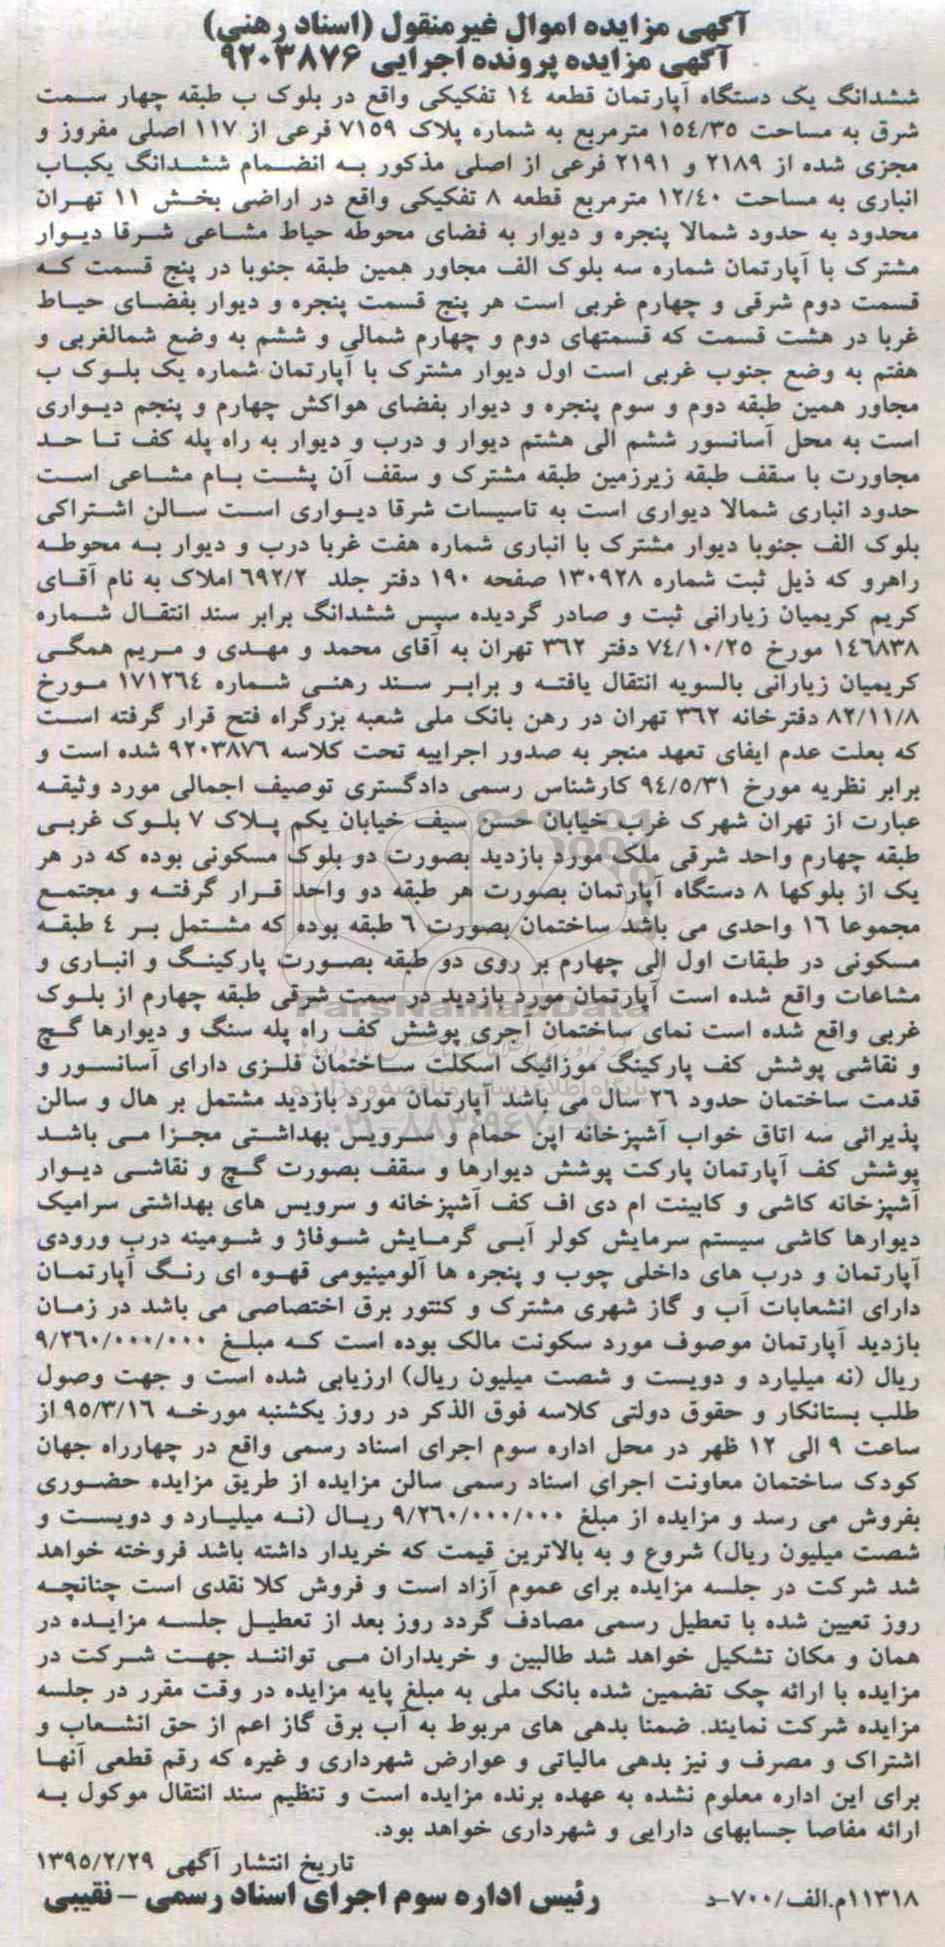 آگهی مزایده اموال غیرمنقول (اسناد رهنی)
آگهی مزایده پرونده اجرایی ۹۲۰۳۸۷۶
ششدانگ یک دستگاه آپارتمان قطعه ۱۴ تفکیکی واقع در بلوک ب طبقه چهار سمت
شرق به مساحت ۱۵۴/۳۵ مترمربع به شماره پلاک ۷۱۵۹ فرعی از ۱۱۷ اصلی مفروز و
مجزی شده از ۲۱۸۹ و ۲۱۹۱ فرعی از اصلی مذکور به انضمام ششدانگ یکباب
انباری به مساحت ۱۲/۴۰ مترمربع قطعه ۸ تفکیکی واقع در اراضی بخش ۱۱ تهران
محدود به حدود شمالا پنجره و دیوار به فضای محوطه حیاط مشاعی شرقا دیوار
مشترک با آپارتمان شماره سه بلوک الف مجاور همین طبقه جنوبا در پنج قسمت که
قسمت دوم شرقی و چهارم غربی است هر پنج قسمت پنجره و دیوار بفضای حیاط
غربا در هشت قسمت که قسمتهای دوم و چهارم شمالی و ششم به وضع شمالغربی و
هفتم به وضع جنوب غربی است اول دیوار مشترک با آپارتمان شماره یک بلوک ب
مجاور همین طبقه دوم و سوم پنجره و دیوار بفضای هواکش چهارم و پنجم دیواری
است به محل آسانسور ششم الی هشتم دیوار و درب و دیوار به راه پله کف تا حد
مجاورت با سقف طبقه زیرزمین طبقه مشترک و سقف آن پشت بام مشاعی است
حدود انباری شمالا دیواری است به تاسیسات شرقا دیواری است سالن اشتراکی
بلوک الف جنوبا دیوار مشترک با انباری شماره هفت غربا درب و دیوار به محوطه
راهرو که ذیل ثبت شماره ۱۳۰۹۲۸ صفحه ۱۹۰ دفتر جلد ۶۹۲/۲ املاک به نام آقای
کریم کریمیان زیارانی ثبت و صادر گردیده سپس ششدانگ برابر سند انتقال شماره
۱۴۶۸۳۸ مورخ ۷۴/۱۰/۲۵ دفتر ۳۶۲ تهران به آقای محمد و مهدی و مریم همگی
کریمیان زیارانی بالسویه انتقال یافته و برابر سند رهنی شماره ۱۷۱۲۶۴ مورخ
۸۲/۱۱/۸ دفترخانه ۳۶۲ تهران در رهن بانک ملی شعبه بزرگراه فتح قرار گرفته است
که بعلت عدم ایفای تعهد منجر به صدور اجراییه تحت کلاسه ۹۲۰۳۸۷۶ شده است و
برابر نظریه مورخ ۹۴/۵/۳۱ کارشناس رسمی دادگستری توصیف اجمالی مورد وثیقه
عبارت از تهران شهرک غرب خیابان حسن سیف خیابان یکم پلاک ۷ بلوک غربی
طبقه چهارم واحد شرقی ملک مورد بازدید بصورت دو بلوک مسکونی بوده که در هر
یک از بلوکها ۸ دستگاه آپارتمان بصورت هر طبقه دو واحد قرار گرفته و مجتمع
مجموعا ۱۶ واحدی می باشد ساختمان بصورت ۶ طبقه بوده که مشتمل بر ۴ طبقه
مسکونی در طبقات اول الی چهارم بر روی دو طبقه بصورت پارکینگ و انباری و
مشاعات واقع شده است آپارتمان مورد بازدید در سمت شرقی طبقه چهارم از بلوک
غربی واقع شده است نمای ساختمان آجری پوشش کف راه پله سنگ و دیوارها گچ
و نقاشی پوشش کف پارکینگ موزائیک اسکلت ساختمان فلزی دارای آسانسور و
قدمت ساختمان حدود ۲۶ سال می باشد آپارتمان مورد بازدید مشتمل بر هال و سالن
پذیرائی سه اتاق خواب آشپزخانه اپن حمام و سرویس بهداشتی مجزا می باشد
پوشش کف آپارتمان پارکت پوشش دیوارها و سقف بصورت گچ و نقاشی دیوار
آشپزخانه کاشی و کابینت ام دی اف کف آشپزخانه و سرویس های بهداشتی سرامیک
دیوارها کاشی سیستم سرمایش کولر آبی گرمایش شوفاژ و شومینه درب ورودی
آپارتمان و درب های داخلی چوب و پنجره ها آلومینیومی قهوه ای رنگ آپارتمان
دارای انشعابات آب و گاز شهری مشترک و کنتور برق اختصاصی می باشد در زمان
بازدید آپارتمان موصوف مورد سکونت مالک بوده است که مبلغ ۹/۲۶۰/۰۰۰/۰۰۰
ریال (نه میلیارد و دویست و شصت میلیون ریال) ارزیابی شده است و جهت وصول
طلب بستانکار و حقوق دولتی کلاسه فوق الذکر در روز یکشنبه مورخه ۹۵/۳/۱۶ از
ساعت ۹ الی ۱۲ ظهر در محل اداره سوم اجرای اسناد رسمی واقع در چهارراه جهان
کودک ساختمان معاونت اجرای اسناد رسمی سالن مزایده از طریق مزایده حضوری
بفروش می رسد و مزایده از مبلغ ۹/۲۶۰/۰۰۰/۰۰۰ ریال (نه میلیارد و دویست و
شصت میلیون ریال) شروع و به بالاترین قیمت که خریدار داشته باشد فروخته خواهد
شد شرکت در جلسه مزایده برای عموم آزاد است و فروش کلا نقدی است چنانچه
روز تعیین شده با تعطیل رسمی مصادف گردد روز بعد از تعطیل جلسه مزایده در
همان و مکان تشکیل خواهد شد طالبین و خریداران می توانند جهت شرکت در
مزایده با ارائه چک تضمین شده بانک ملی به مبلغ پایه مزایده در وقت مقرر در جلسه
مزایده شرکت نمایند. ضمنا بدهی های مربوط به آب برق گاز اعم از حق انشعاب و
اشتراک و مصرف و نیز بدهی مالیاتی و عوارض شهرداری و غیره که رقم قطعی آنها
برای این اداره معلوم نشده به عهده برنده مزایده است و تنظیم سند انتقال موکول به
ارائه مفاصا جسابهای دارایی و شهرداری خواهد بود.
تاریخ انتشار آگهی ۱۳۹۵/۲/۲۹
۱۱۳۱۸م.الف/۷۰۰-د رئیس اداره سوم اجرای اسناد رسمی - نقیبی
ParsNamadData
پایگاه اطلاع رسانی مناقصه و مزایده